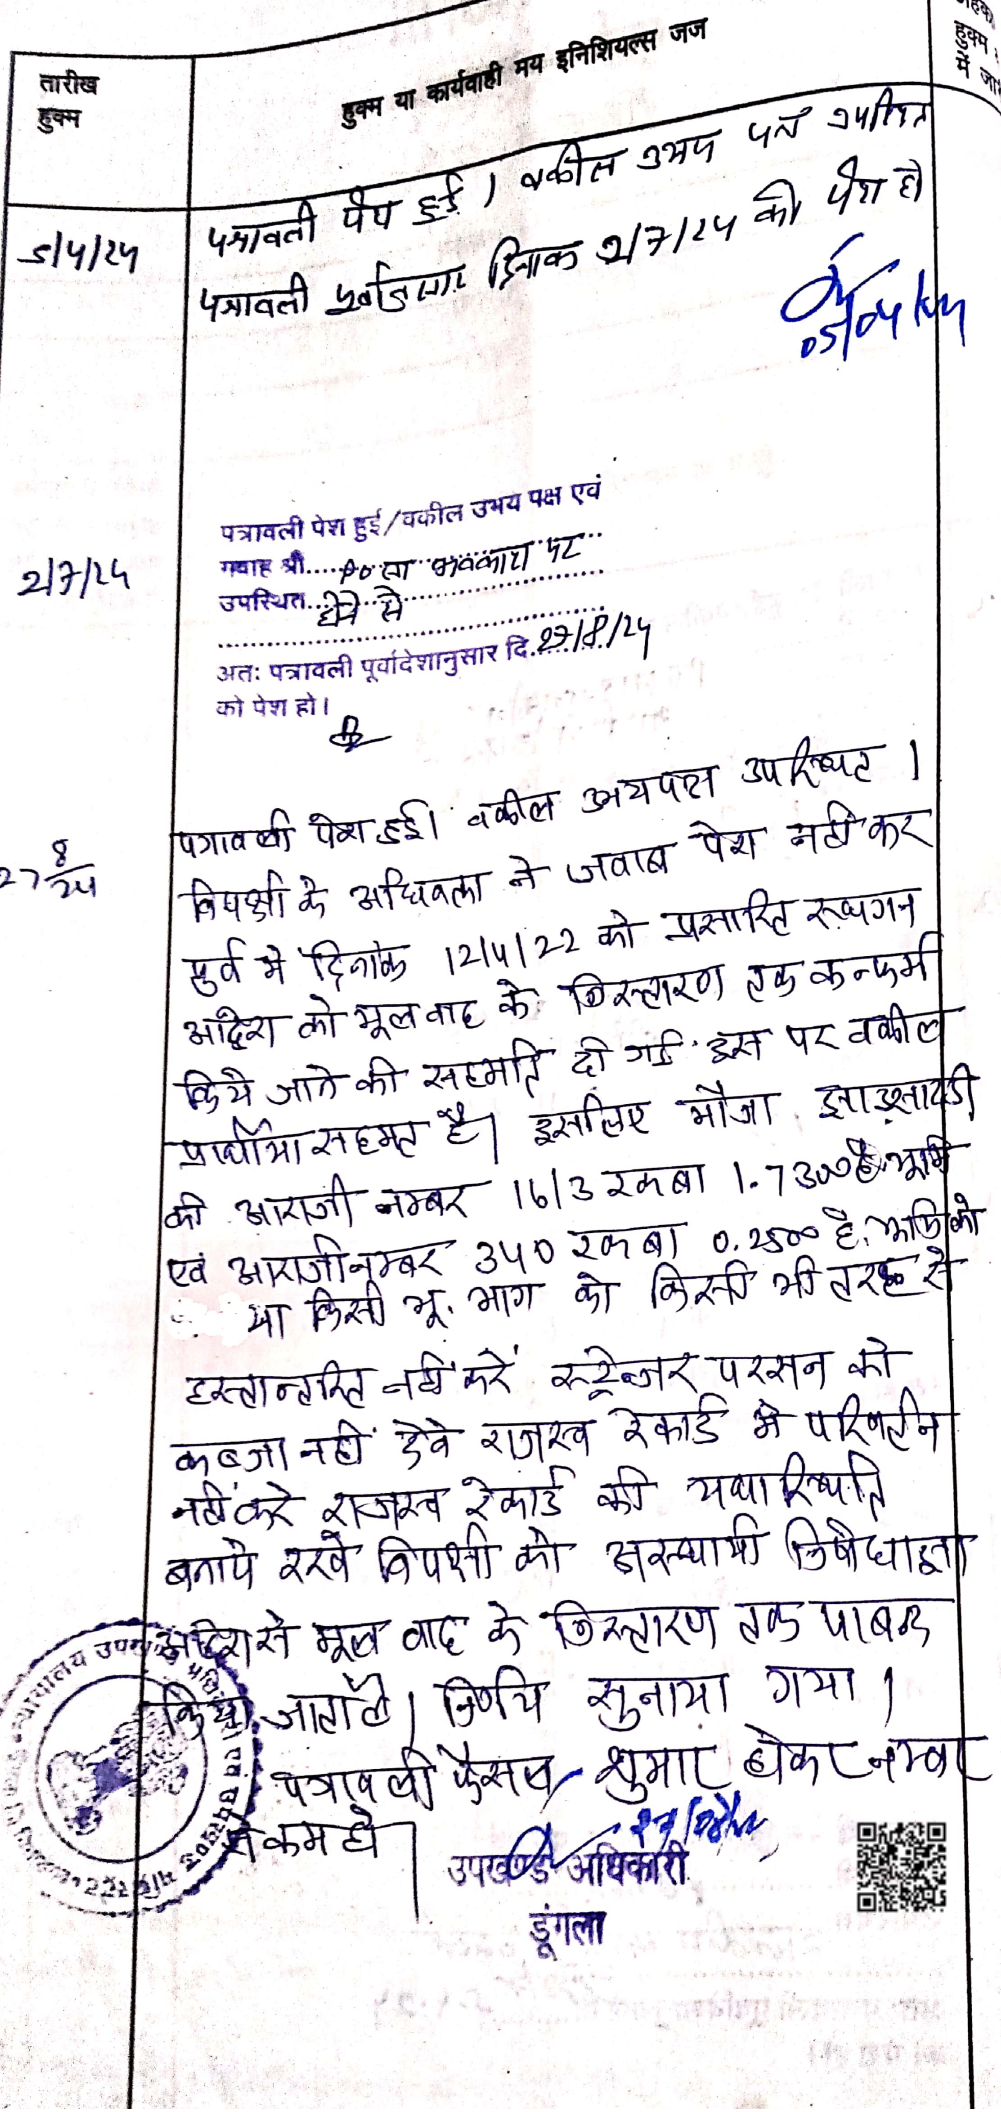 तारीख
हुक्म
हुक्म या कार्यवाही मय इनिशियल्स जज
हुक्म
में
5/4/24
पत्रावली पेश हुई । वकील उभय पक्ष उपस्थित
पत्रावली पूर्वानुसार दिनांक 2/7/24 को पेश हो
05/04/24
2/7/24
पत्रावली पेश हुई/वकील उभय पक्ष एवं
गवाह श्री..... P० सा० अवकाश पर
उपस्थित... होने से
अतः पत्रावली पूर्वादेशानुसार दि. 27/8/24
को पेश हो।
27 8/24
पत्रावली पेश हुई। वकील उभयपक्ष उपस्थित ।
विपक्षी के अधिवक्ता ने जवाब पेश नही कर
पुर्व मे दिनांक 12/4/22 को प्रसारित स्थगन
आदेश को मूल वाद के निस्तारण तक कन्फर्म
किये जाने की सहमति दी गई इस पर वकील
प्रार्थीया सहमत है। इसलिए मौजा
की आराजी नम्बर 1613 रकबा 1.7300 है. भूमि
एवं आराजी नम्बर 340 रकबा 0.2500 है. भूमि को
या किसी भू. भाग को किसी भी तरह से
हस्तान्तरित नही करें स्ट्रेन्जर परसन को
कब्जा नहीं देवे राजस्व रेकार्ड मे परिवर्तन
नही करे राजस्व रेकार्ड की यथास्थिति
बनाये रखे विपक्षी को अस्थायी निषेधाज्ञा
आदेश से मूल वाद के निस्तारण तक पाबन्द
किया जाता है। निर्णय सुनाया गया ।
पत्रावली फैसल शुमार होकर नम्बर
से कम हो ।
उपखण्ड अधिकारी
डूंगला